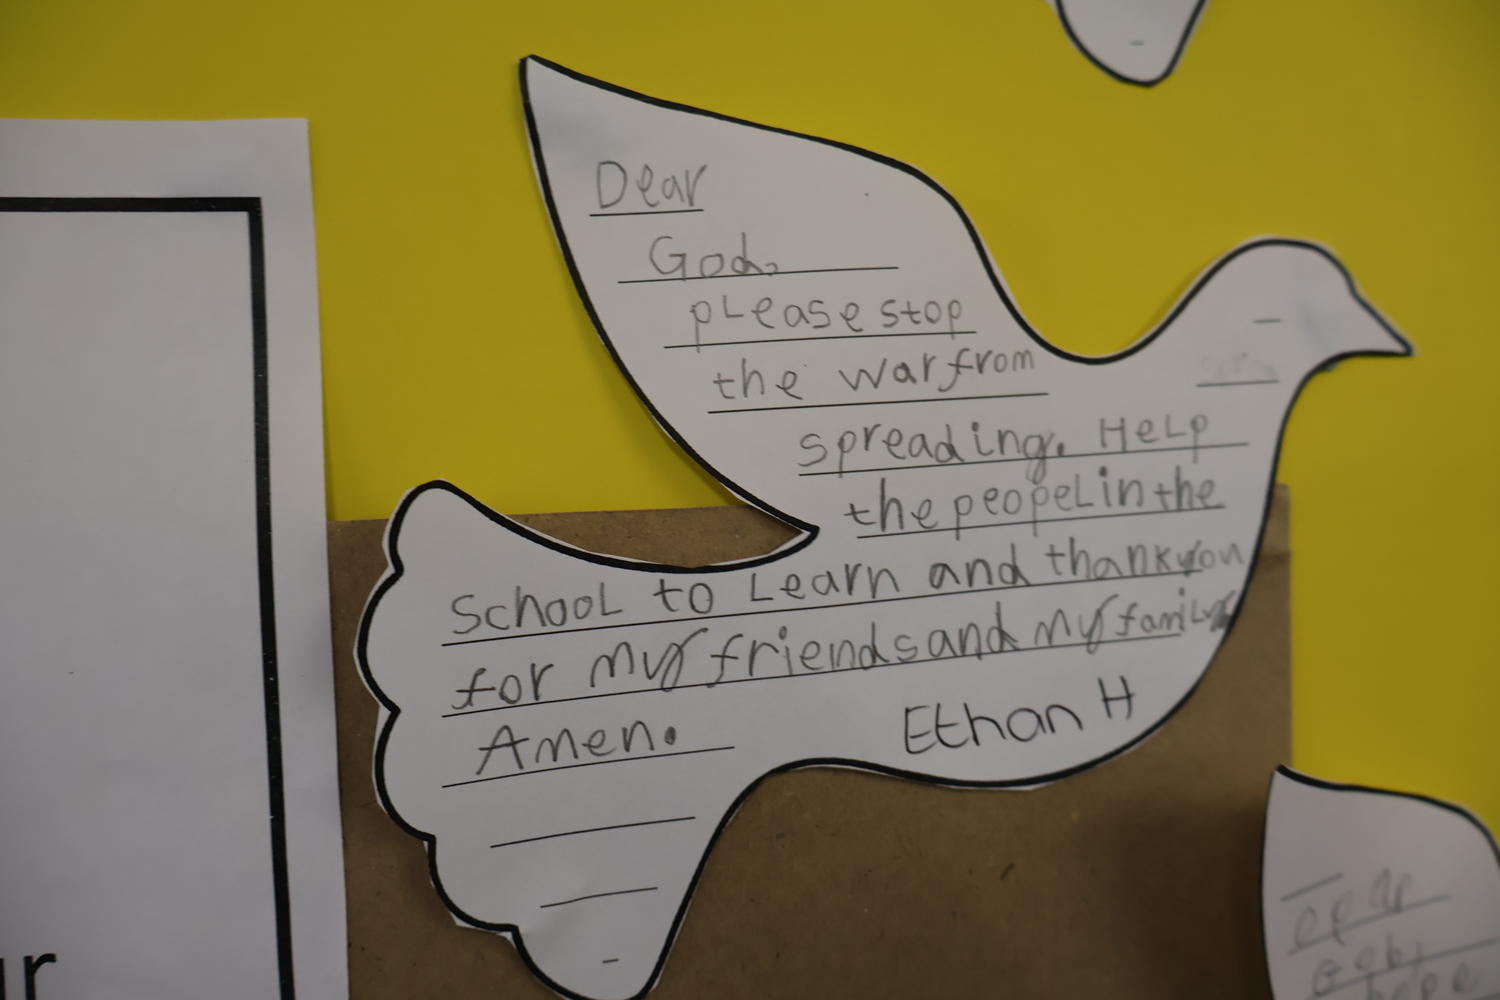 Dear
God,
pLease stop
the war from
spreading. HeLp
the peopeL in the
SchooL to Learn and thank you
for my friends and my famiLy
Amen.
Ethan H
ur